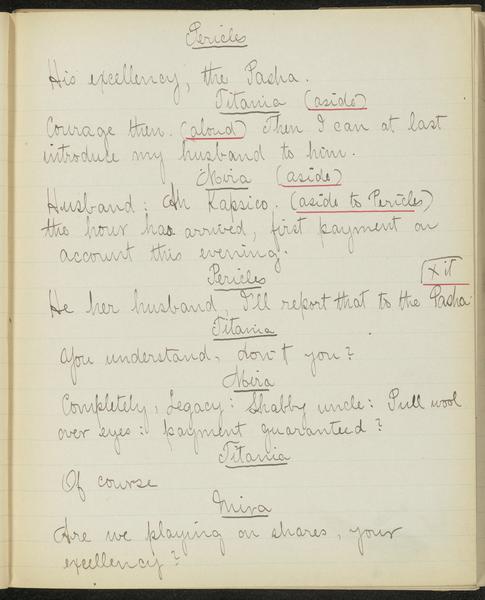 Pericles
His excellency, the Pasha.
Titania (aside)
Courage then. (aloud) Then I can at last
introduce my husband to him.
Mira (aside)
Husband: Ah Kapsico. (aside to Pericles)
the hour has arrived, first payment on
account this evening.
Pericles
He her husband, I'll report that to the Pasha. Xit
Titania
You understand, don't you?
Mira
Completely, Legacy: Shabby uncle: Pull wool
over eyes: payment guaranteed?
Titania
Of course
Mira
Are we playing on shares, your
excellency?